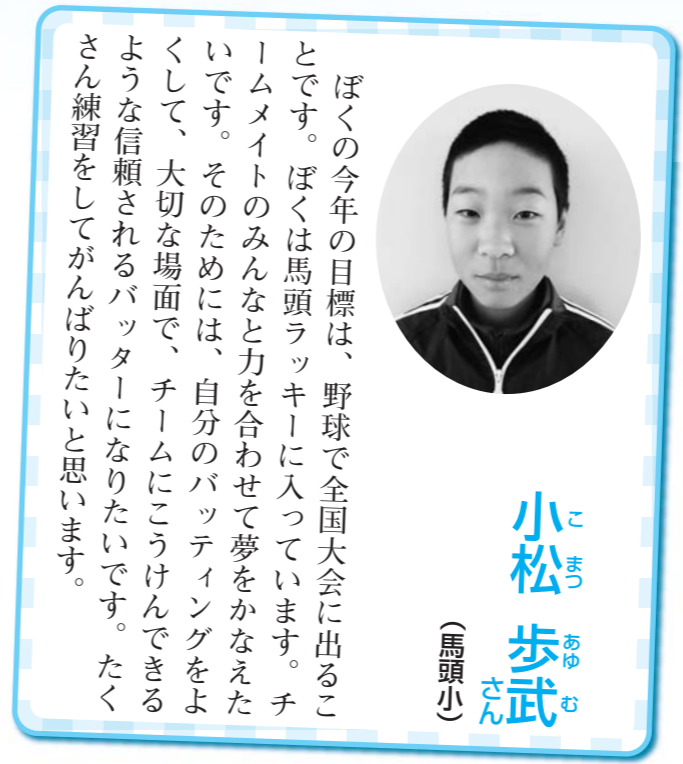 小松 歩武さん
こ まつ あゆ む
（馬頭小）
ぼくの今年の目標は、野球で全国大会に出るこ
とです。ぼくは馬頭ラッキーに入っています。チ
ームメイトのみんなと力を合わせて夢をかなえた
いです。そのためには、自分のバッティングをよ
くして、大切な場面で、チームにこうけんできる
ような信頼されるバッターになりたいです。たく
さん練習をしてがんばりたいと思います。